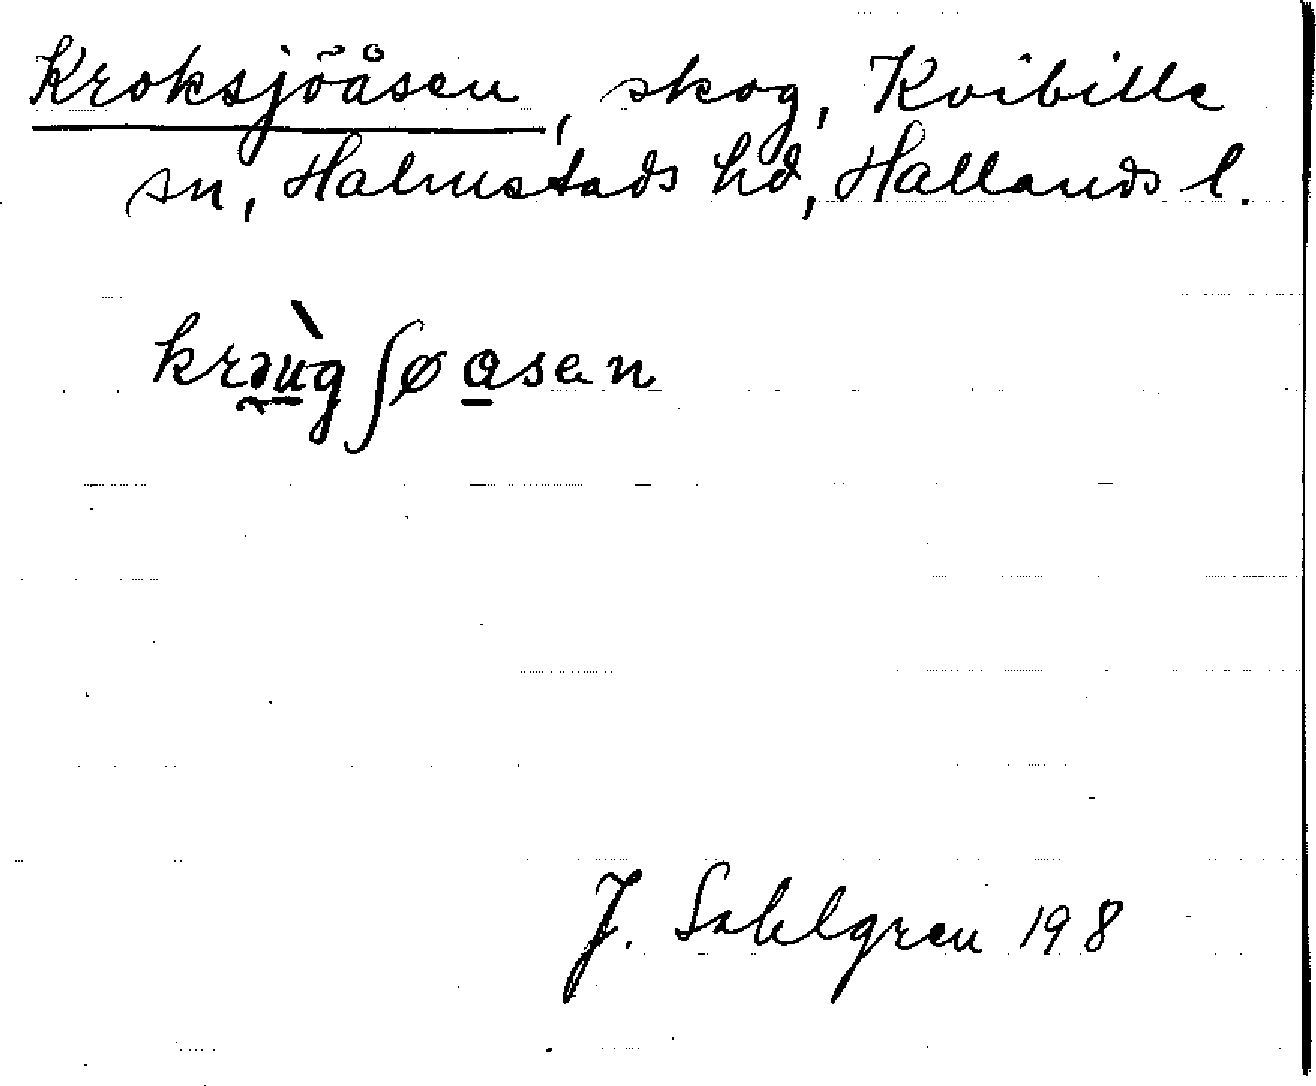 Kroksjöåsen, skog, Kvibille
sn, Halmstads hd, Hallands l.
krəùgʃøasen
J. Sahlgren 198